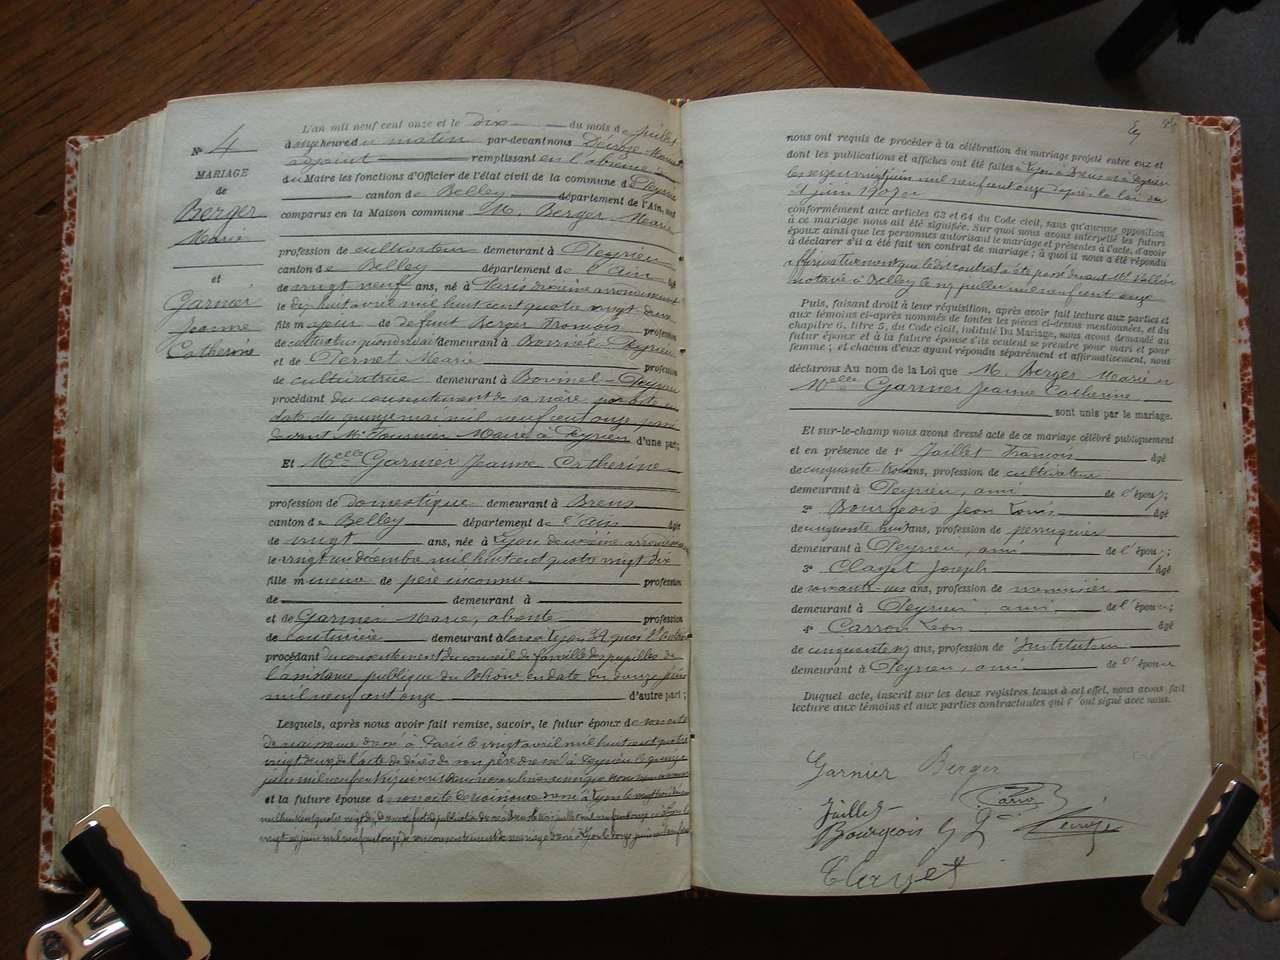 L'an mil neuf cent onze et le dix du mois de juillet
N° 4
à onze heures du matin par-devant nous
adjoint remplissant en l'absence
du Maire les fonctions d'Officier de l'état civil de la commune de Peyrieu
canton de Belley département de l'Ain, sont
comparus en la Maison commune M. Berger Marie
MARIAGE
de
Berger
Marie
et
Garnier
Jeanne
Catherine
profession de cultivateur demeurant à Peyrieu
canton de Belley département de l'Ain âgé
de vingt neuf ans, né à Paris arrondissement
le dix huit avril mil huit cent quatre vingt deux
fils majeur de défunt Berger François profession
de cultivateur demeurant à Peyrieu
et de Pernet Marie profession
de cultivatrice demeurant à Peyrieu
procédant du consentement de sa mère
date du quinze mai mil neuf cent onze
devant Mr Fournier Maire à Peyrieu d'une part;
Et Melle Garnier Jeanne Catherine
profession de domestique demeurant à Brens
canton de Belley département de l'Ain âgée
de vingt ans, née à Lyon deuxième arrondissement
le vingt un décembre mil huit cent quatre vingt dix
fille mineure de père inconnu profession
de demeurant à
et de Garnier Marie, absente profession
de couturière demeurant à Lyon 39 quai
procédant du consentement du conseil de famille des pupilles de
l'assistance publique du Rhône en date du douze juin
mil neuf cent onze d'autre part;
Lesquels, après nous avoir fait remise, savoir, le futur époux de son acte
de naissance dressé à Paris le vingt avril mil huit cent quatre
vingt deux de l'acte de décès de son père dressé à Peyrieu le quinze
juin mil neuf cent
et la future épouse de son acte de naissance dressé à Lyon le vingt
nous ont requis de procéder à la célébration du mariage projeté entre eux et
dont les publications et affiches ont été faites à Lyon à Brens et à Peyrieu
les vingt juin mil neuf cent onze d'après la loi du
21 juin 1907
conformément aux articles 63 et 64 du Code civil, sans qu'aucune opposition
à ce mariage nous ait été signifiée. Sur quoi nous avons interpellé les futurs
époux ainsi que les personnes autorisant le mariage et présentes à l'acte, d'avoir
à déclarer s'il a été fait un contrat de mariage; à quoi il nous a été répondu
affirmativement que le dit contrat a été passé devant Me
notaire à Belley le juillet mil neuf cent onze
Puis, faisant droit à leur réquisition, après avoir fait lecture aux parties et
aux témoins ci-après nommés de toutes les pièces ci-dessus mentionnées, et du
chapitre 6, titre 5, du Code civil, intitulé Du Mariage, nous avons demandé au
futur époux et à la future épouse s'ils veulent se prendre pour mari et pour
femme; et chacun d'eux ayant répondu séparément et affirmativement, nous
déclarons Au nom de la Loi que M. Berger Marie et
Melle Garnier Jeanne Catherine
sont unis par le mariage.
Et sur-le-champ nous avons dressé acte de ce mariage célébré publiquement
et en présence de 1° Jaillet François âgé
de cinquante trois ans, profession de cultivateur
demeurant à Peyrieu, ami de l'époux;
2° Bourgeois Jean Louis âgé
de cinquante huit ans, profession de perruquier
demeurant à Peyrieu, ami de l'époux;
3° Clayet Joseph âgé
de soixante ans, profession de menuisier
demeurant à Peyrieu, ami de l'épouse;
4° Carron Léon âgé
de cinquante ans, profession de Instituteur
demeurant à Peyrieu, ami de l'épouse
Duquel acte, inscrit sur les deux registres tenus à cet effet, nous avons fait
lecture aux témoins et aux parties contractantes qui l'ont signé avec nous.
Garnier Berger
Jaillet
Bourgeois
Clayet